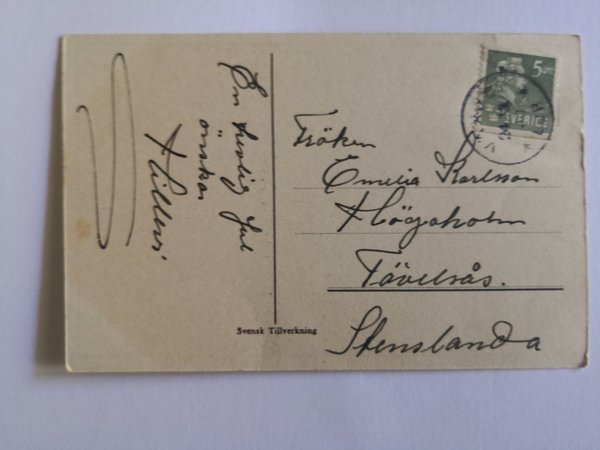 En herlig Jul
önskar
Hillevi
Fröken
Emelia Karlsson
Högaholm
Tävelsås.
Stenslanda
Svensk Tillverkning
5 ÖRE
SVERIGE